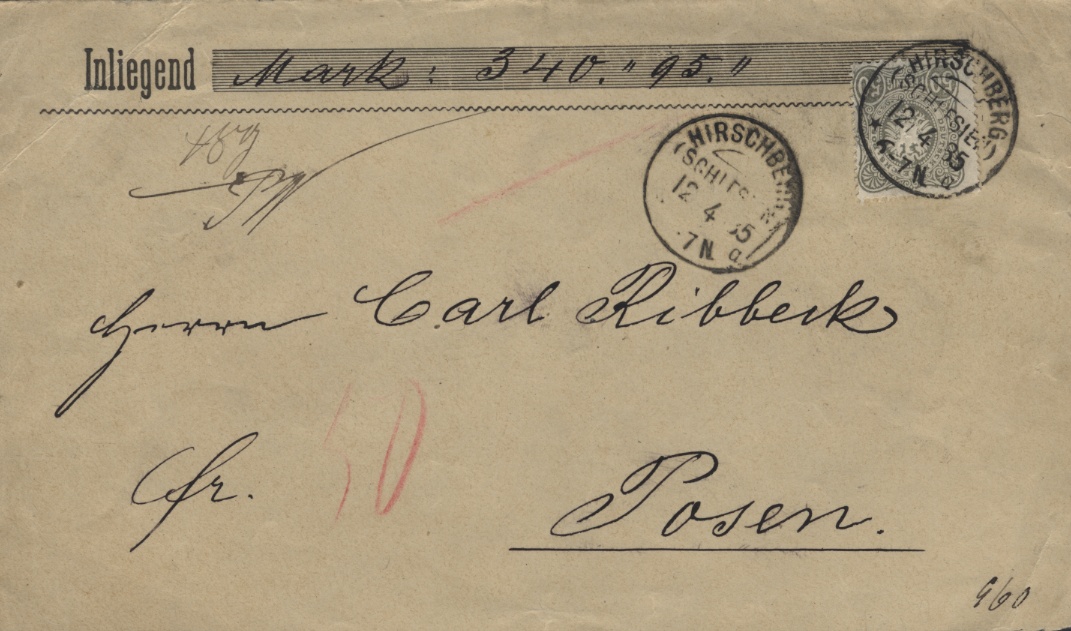 Inliegend Mark: 340."95."
HIRSCHBERG
(SCHLESIEN)
12 4 85
6-7 N.
a
HIRSCHBERG
(SCHLESIEN)
12 4 85
7 N.
a
Herrn Carl Ribbeck
fr. 50
Posen.
960